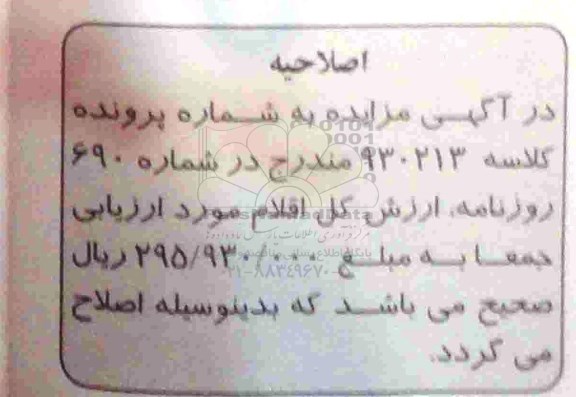 اصلاحیه
در آگهی مزایده به شماره پرونده
کلاسه ۹۳۰۲۱۳ مندرج در شماره ۶۹۰
روزنامه، ارزش کل اقلام مورد ارزیابی
جمعا به مبلغ ۲۹۵/۹۳۰/۰۰۰ ریال
صحیح می باشد که بدینوسیله اصلاح
می گردد.
پایگاه اطلاع رسانی
۰۲۱-۸۸۳۴۹۶۷۰